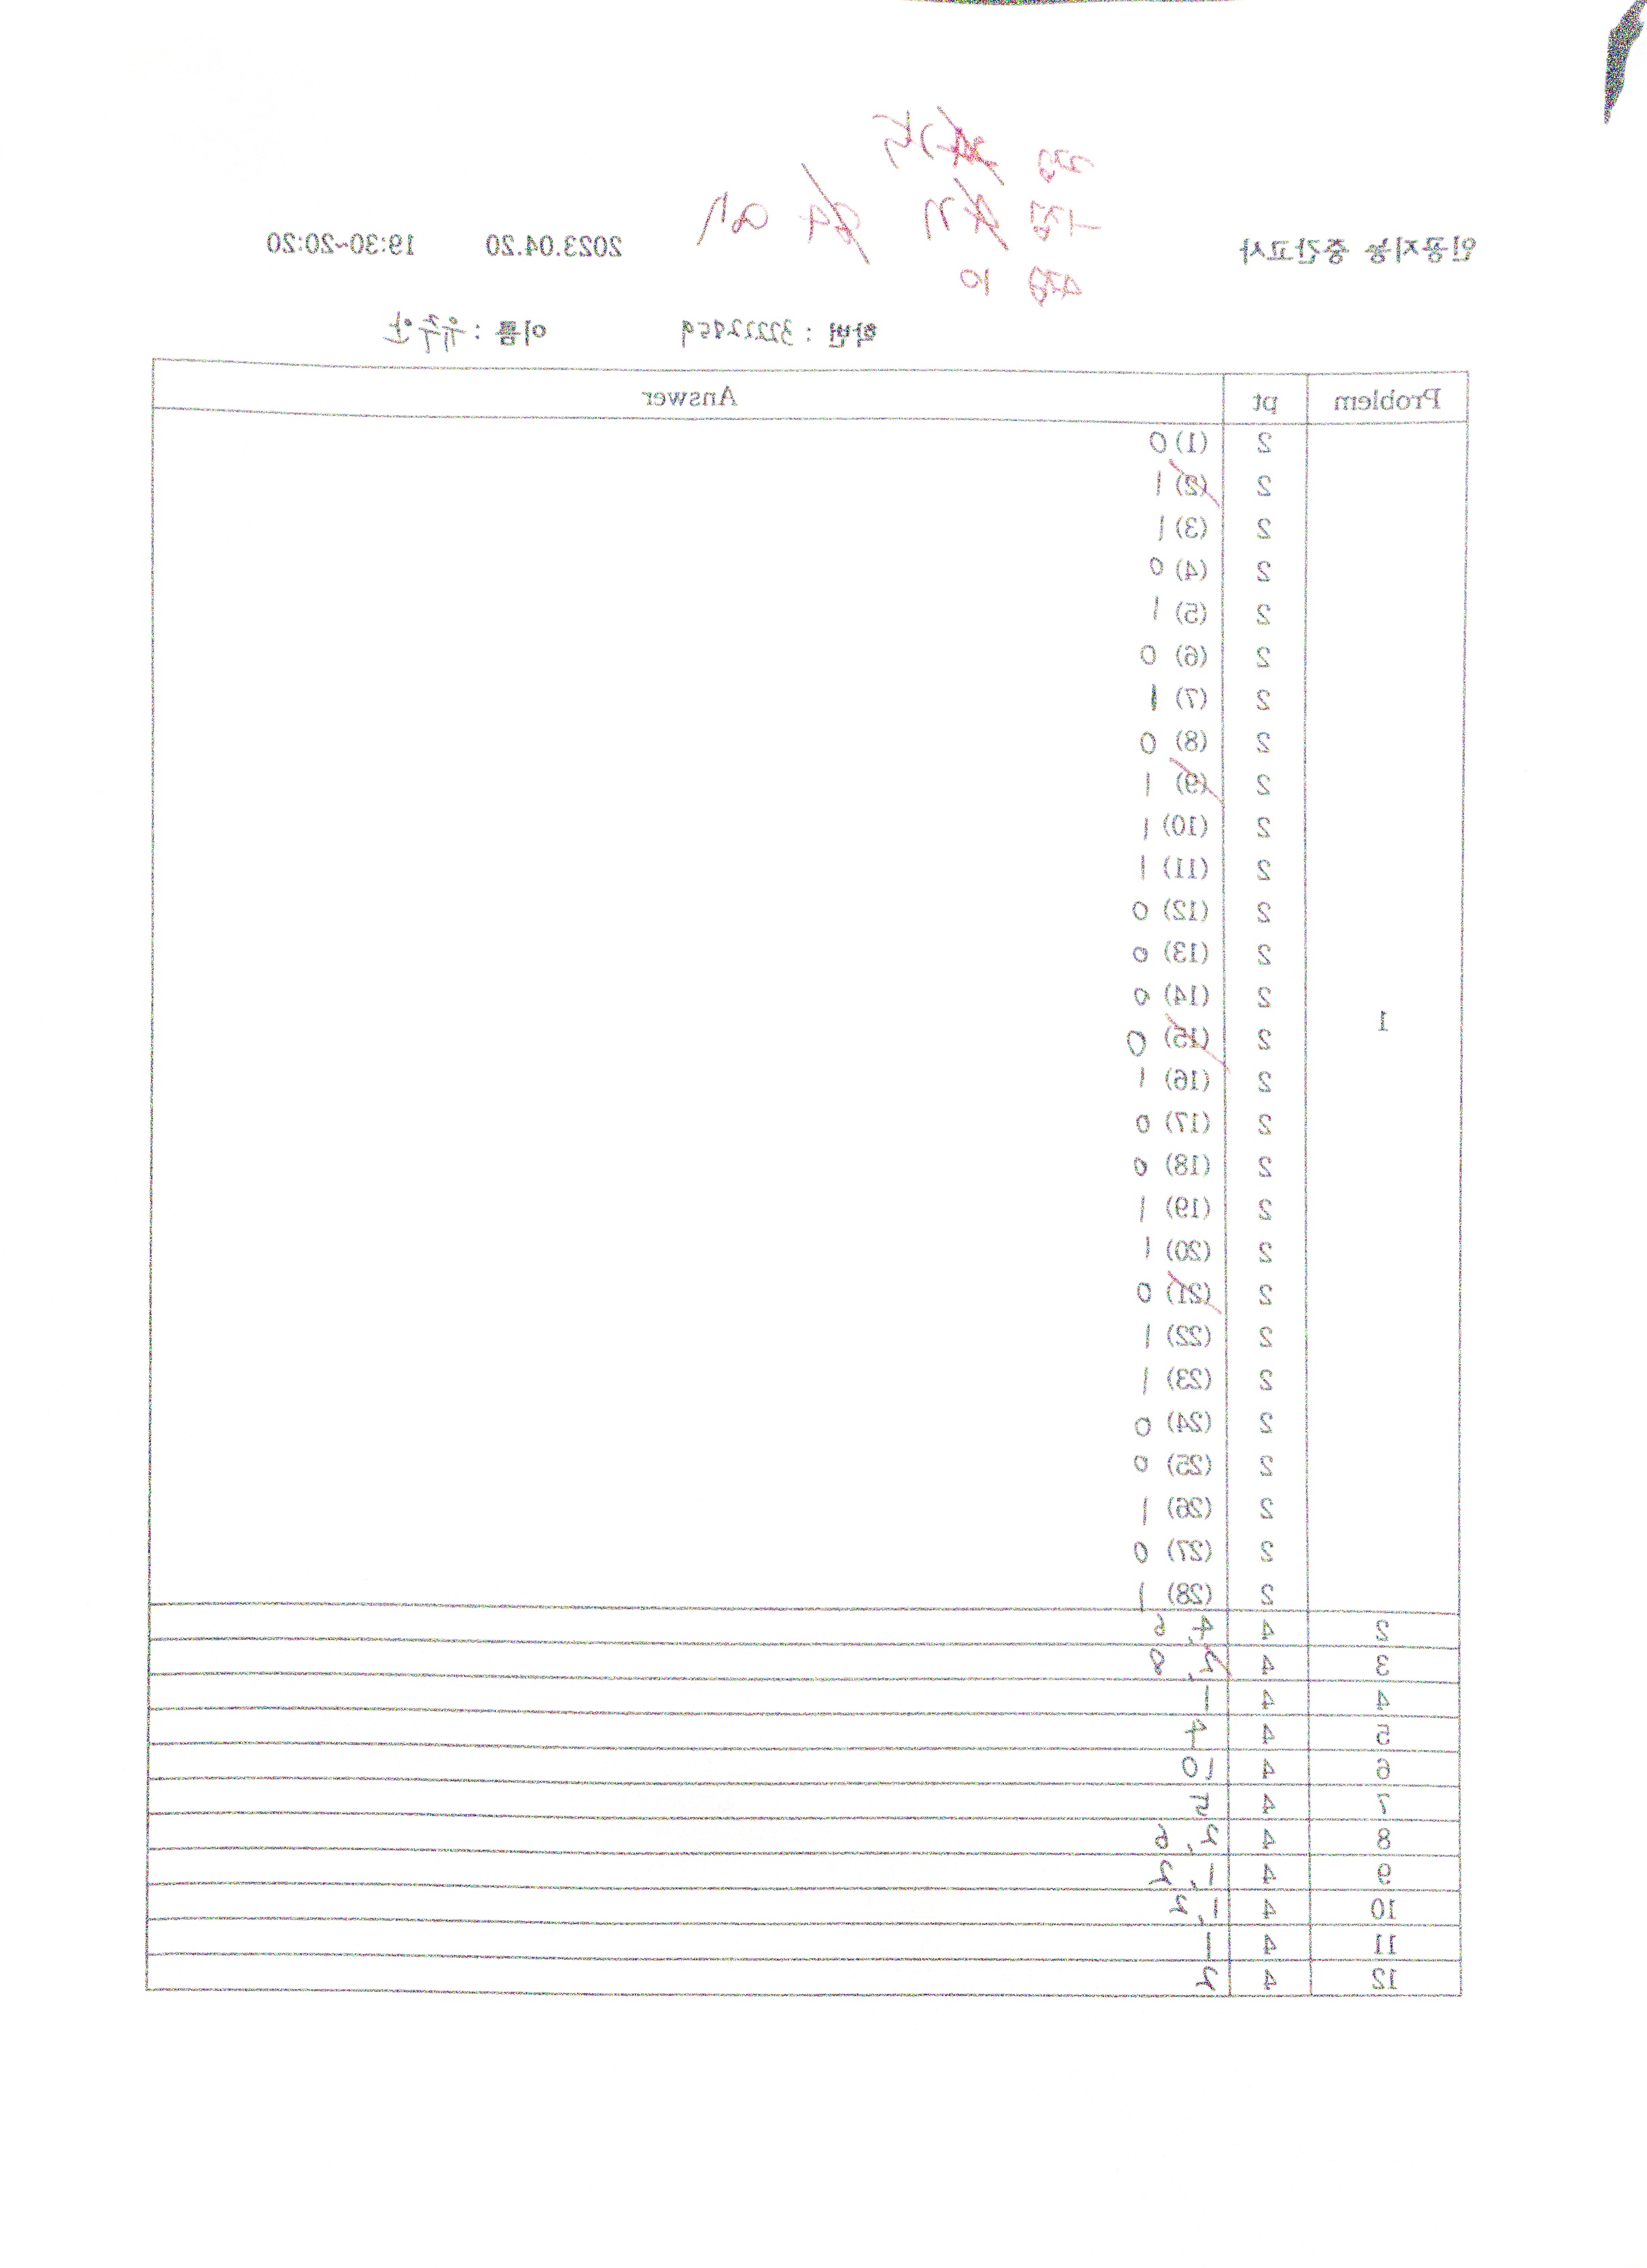 인공지능 중간고사 2023.04.20 19:30~20:20
학번 : 이름 : 유주안
Problem pt Answer
1
2 (1) 0
2 (2) 1
2 (3) 1
2 (4) 0
2 (5) 1
2 (6) 0
2 (7) 1
2 (8) 0
2 (9) 1
2 (10) 1
2 (11) 1
2 (12) 0
2 (13) 0
2 (14) 0
2 (15) 0
2 (16) 1
2 (17) 0
2 (18) 0
2 (19) 1
2 (20) 1
2 (21) 0
2 (22) 1
2 (23) 1
2 (24) 0
2 (25) 0
2 (26) 1
2 (27) 0
2 (28) 1
2 4 4, 6
3 4 2, 8
4 4 1
5 4 4
6 4 10
7 4 5
8 4 2, 6
9 4 1, 2
10 4 1, 2
11 4 1
12 4 2